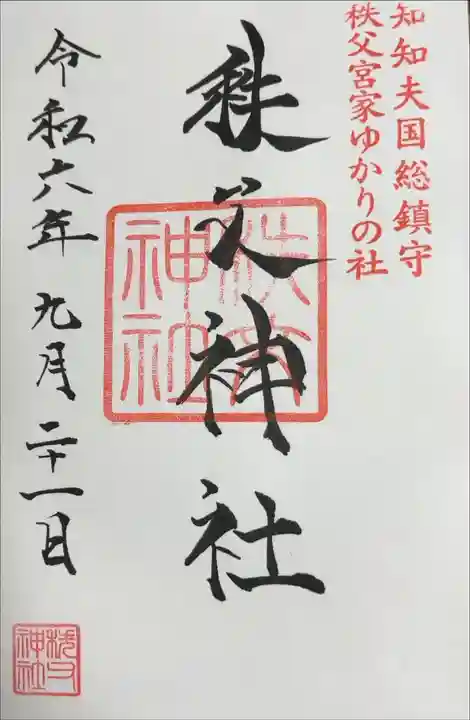 知知夫国総鎮守
秩父宮家ゆかりの社
秩父神社
秩父神社
令和六年九月二十一日